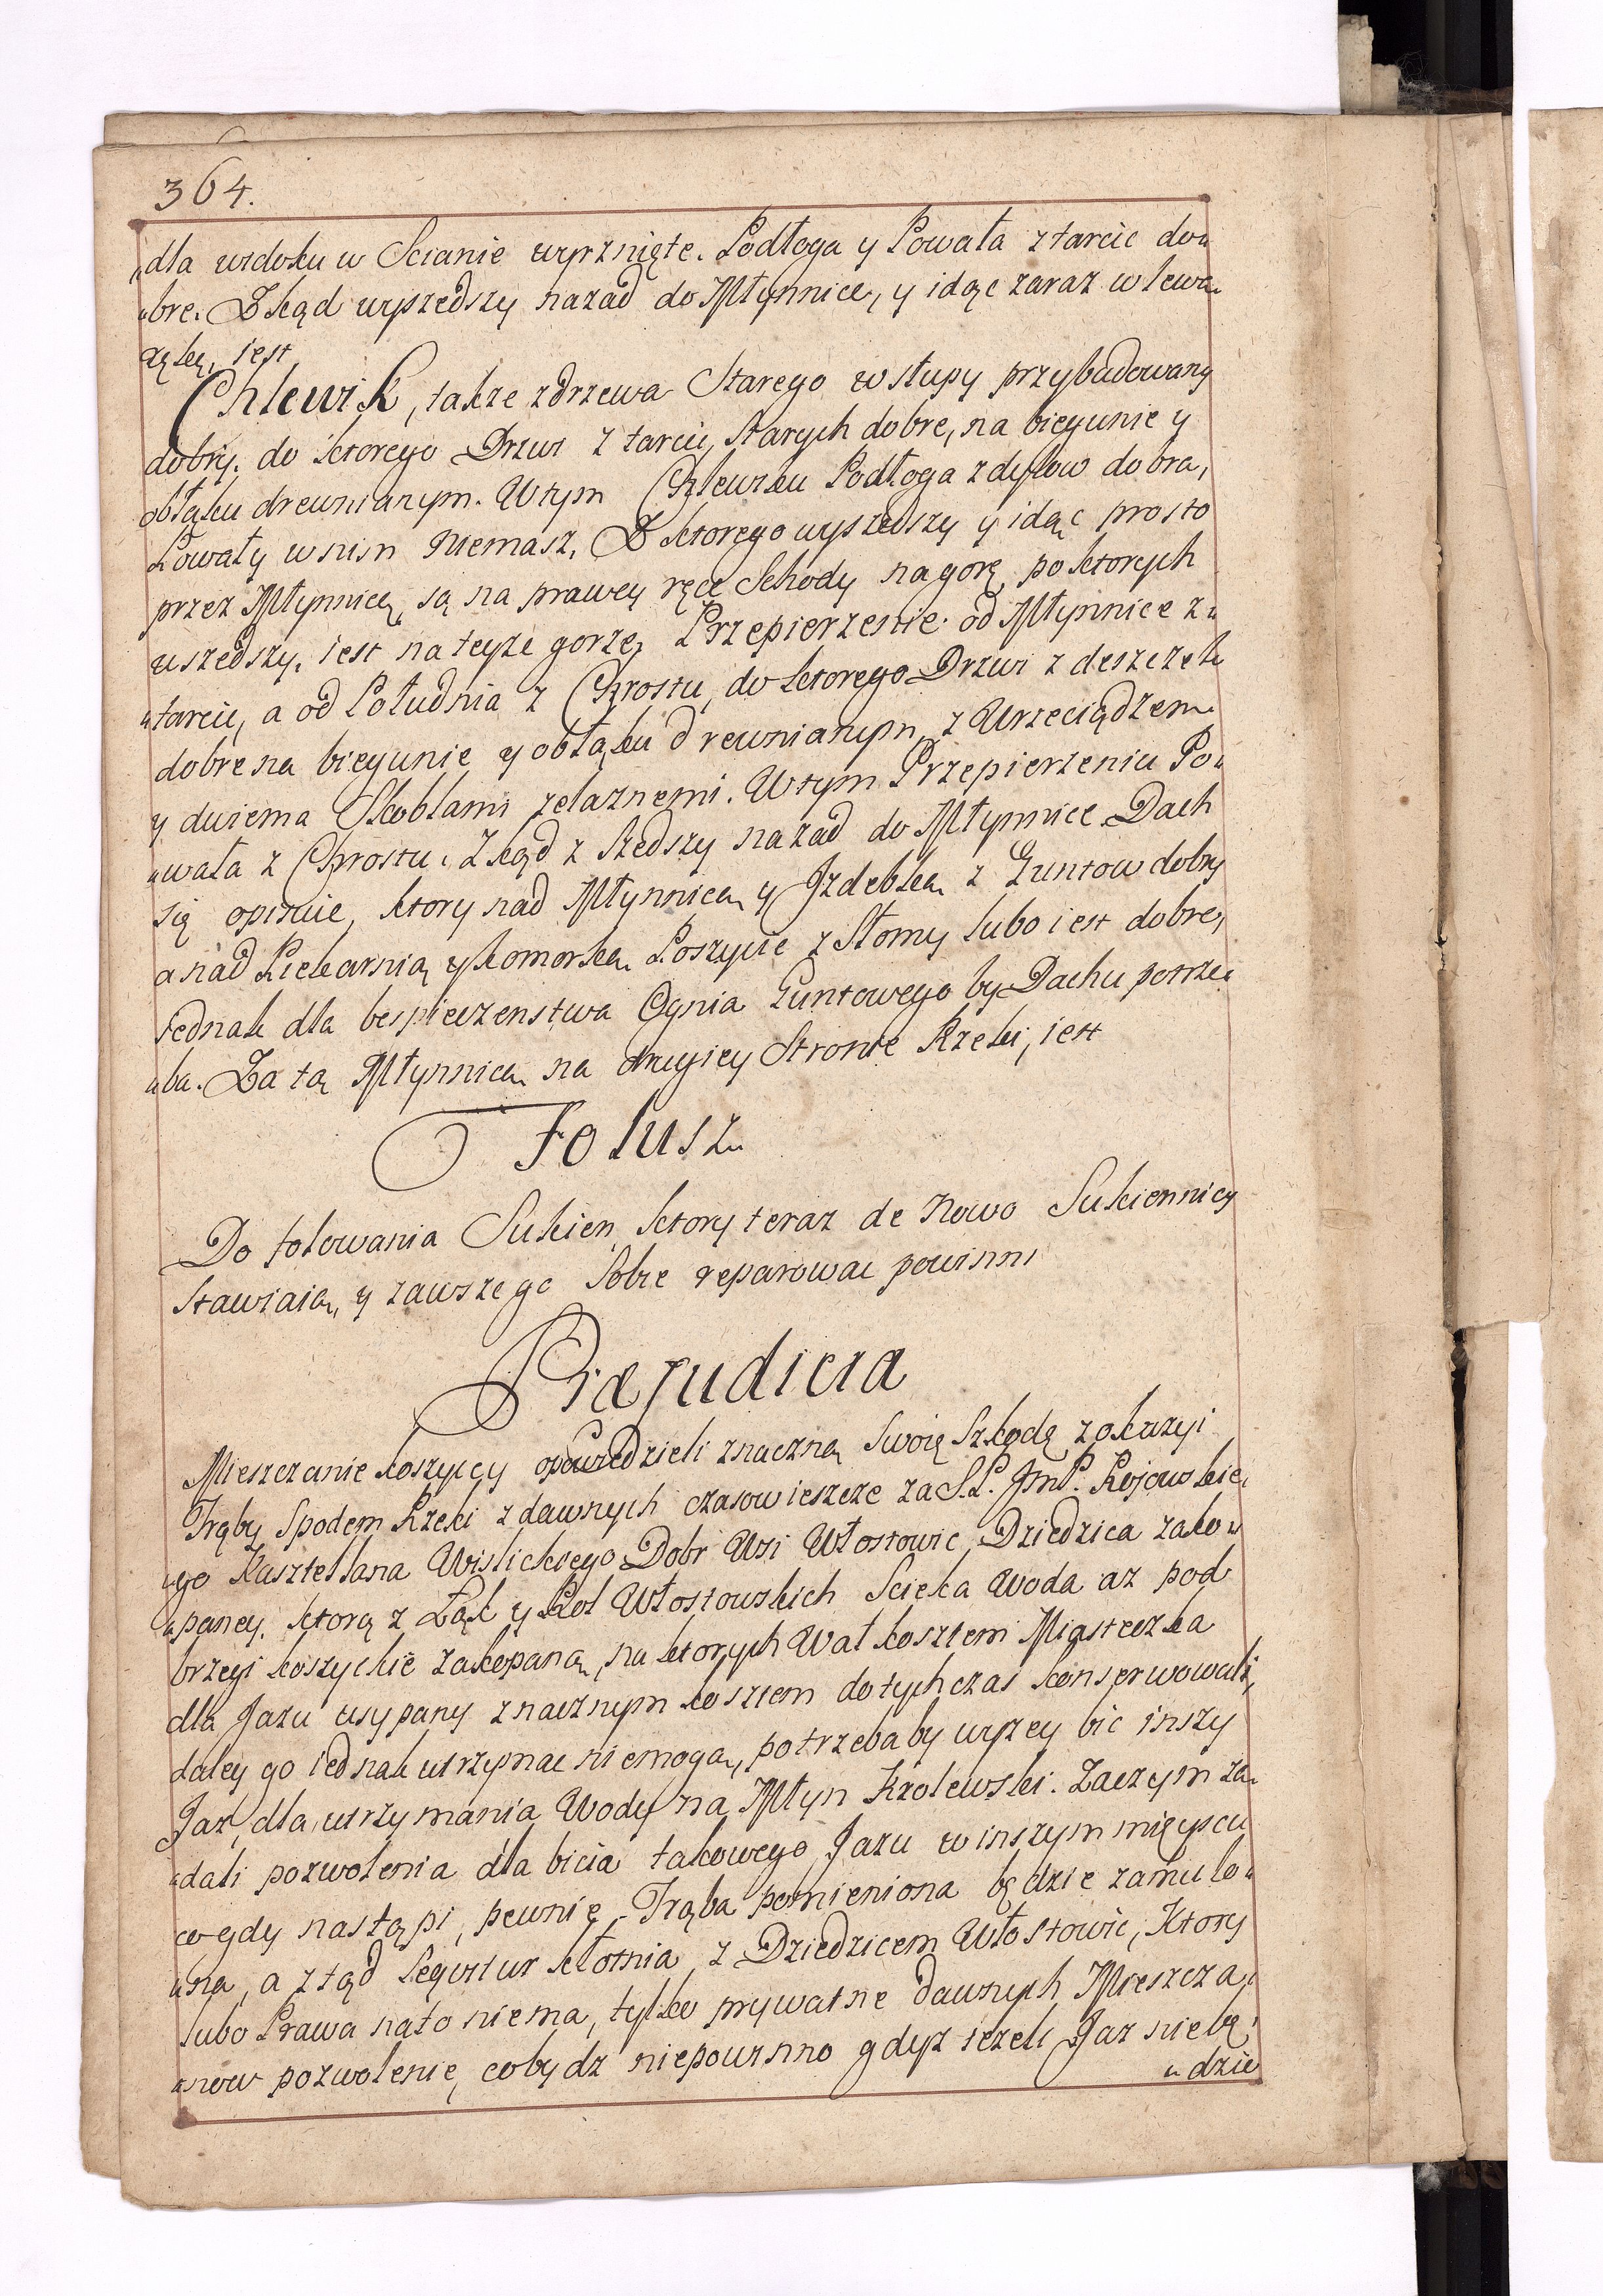 364.
dla widoku w Scianie wyrznięte. Podłoga y Powała z tarcic do„
„bre. Zkąd wyszedszy nazad do Młynnice, y idąc zaraz w lewą
rękę, iest
Chlewik, także z drzewa Starego w słupy przybudowany
dobry. do ktorego Drzwi z tarcic Starych dobre, na biegunie y
obłąku drewnianym. W tym Chlewiku Podłoga z dylow dobra,
Powały w nim niemasz, Z ktorego wyszedszy y idąc prosto
przez Młynnicę, są na prawey ręce Schody na gorę, po ktorych
wszedszy, iest na teyże gorze, Przepierzenie od Młynnice z„
„tarcic, a od Południa z Chrostu, do ktorego Drzwi z deszczek
dobre na biegunie y obłąku drewnianym, z Wrzeciądzem
y dwiema Skoblami żelaznemi. W tym Przepierzeniu Po„
„wała z Chrostu. Zkąd z szedszy nazad do Młynnice Dach
się opisuie, ktory nad Młynnicą y Jzdebką z Guntow dobry
a nad Piekarnią y komorką Poszycie z Słomy lubo iest dobre,
Jednak dla bespieczenstwa Ognia Guntowego by Dachu potrze„
„ba. Za tą Młynnicą na drugiey Stronie Rzeki, iest
Folusz
Do folowania Sukien ktory teraz de Nowo Sukiennicy
Stawiaią, y zawsze go Sobie reparowac powinni
Præjudicia
Mieszczanie koszyccy opowiedzieli znaczną Swoię Szkodę z okazyi
Trąby Spodem Rzeki z dawnych czasow ieszcze za S.P. JmP. Rojowskie„
„go Kasztellana Wislickiego Dobr Wsi Włostowic Dziedzica zako„
„paney. ktorą z Łąk y Pol Włostowskich Scieka Woda az pod
brzegi koszyckie zakopaną, na ktorych Wał kosztem Miasteczka
dla Jazu usypany znacznym kosztem dotychczas konserwowali,
daley go iednak utrzymac niemogą, potrzeba by wyzey bic inszy
Jaz, dla utrzymania Wody na Młyn Krolewski. Zaczym żą„
„dali pozwolenia dla bicia takowego Jazu w inszym mieyscu
co gdy nastąpi, pewnie Trąba pomieniona będzie zamulo„
„na, a ztąd seqvitur kłotnia z Dziedzicem Włostowic, Ktory
lubo Prawa nato niema, tylko prywatne dawnych Mieszcza„
„now pozwolenie, co bydz niepowinno gdyż ieżeli Jaz niebę„
„dzie